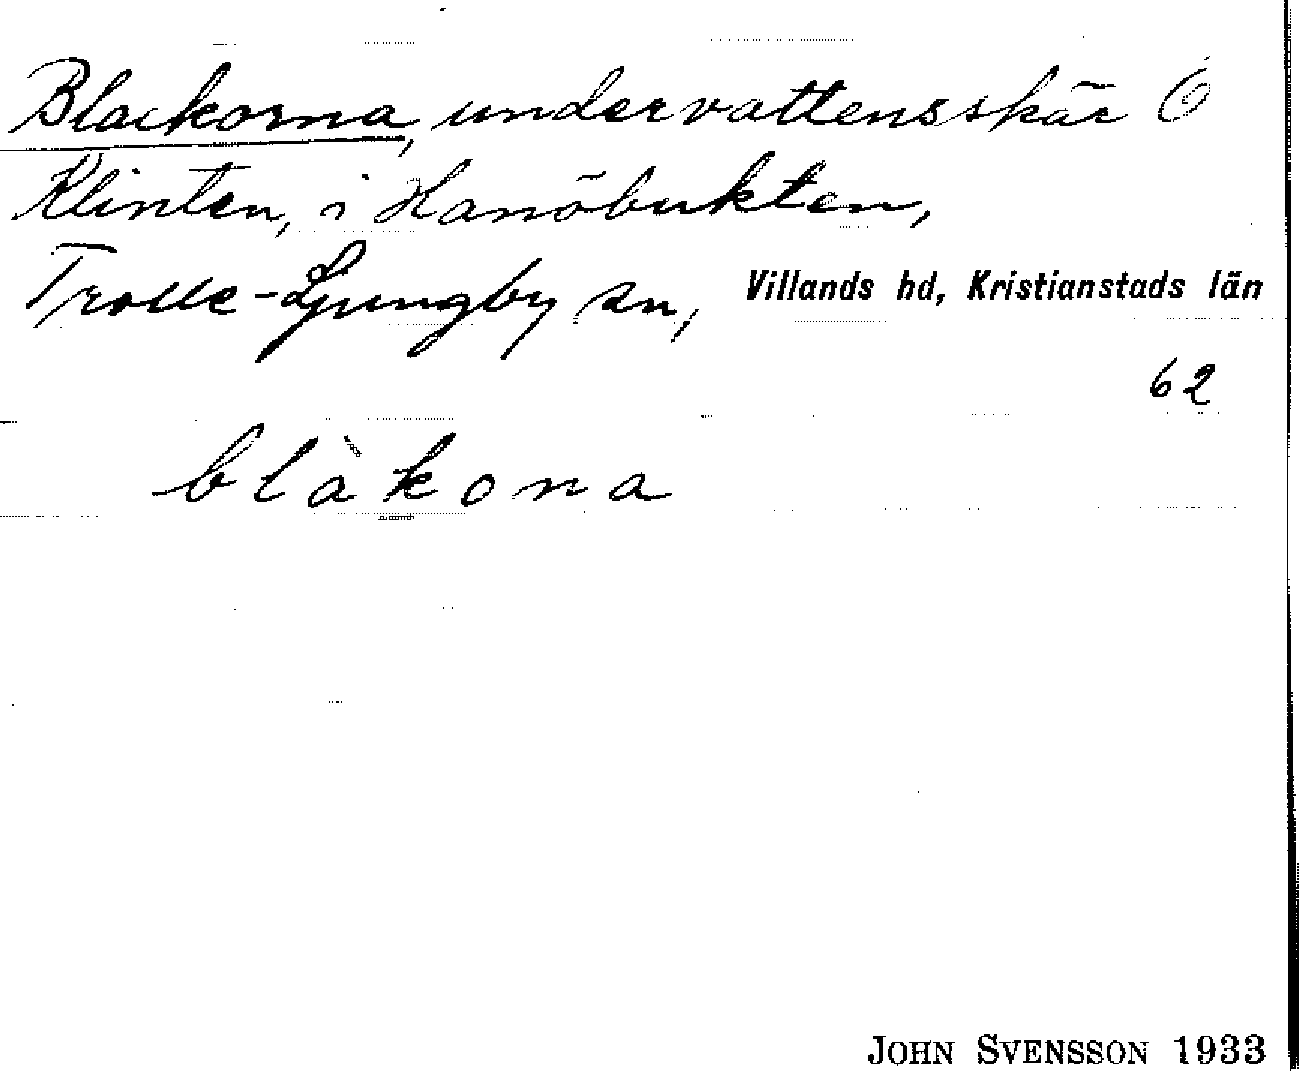 Blackorna, undervattensskär Ö
Klinten, i Hanöbukten,
Trolle-Ljungby sn, Villands hd, Kristianstads län
62
blàkona
JOHN SVENSSON 1933